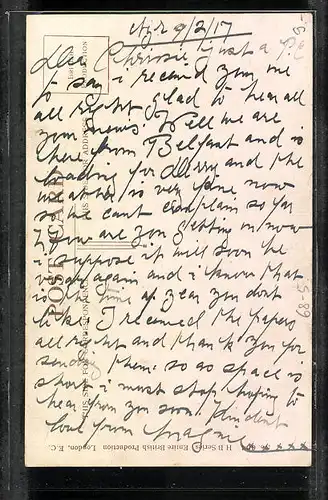 Ayr 9/2/17
Dear Chrissie just a P.C
to say i received your one
all right glad to hear all
your news. Well we are
here from Belfast and is
loading for Derry and the
weather is very fine now
so we cant complain so far
how are you getting on now
i suppose it will soon be
again and i know that
is the time of year you dont
like I received the papers
all right and thank you for
sending them so as space is
short i must stop hoping to
hear from you soon
love from
H B Series Entire British Production London, E.C.
POST CARD
S-89